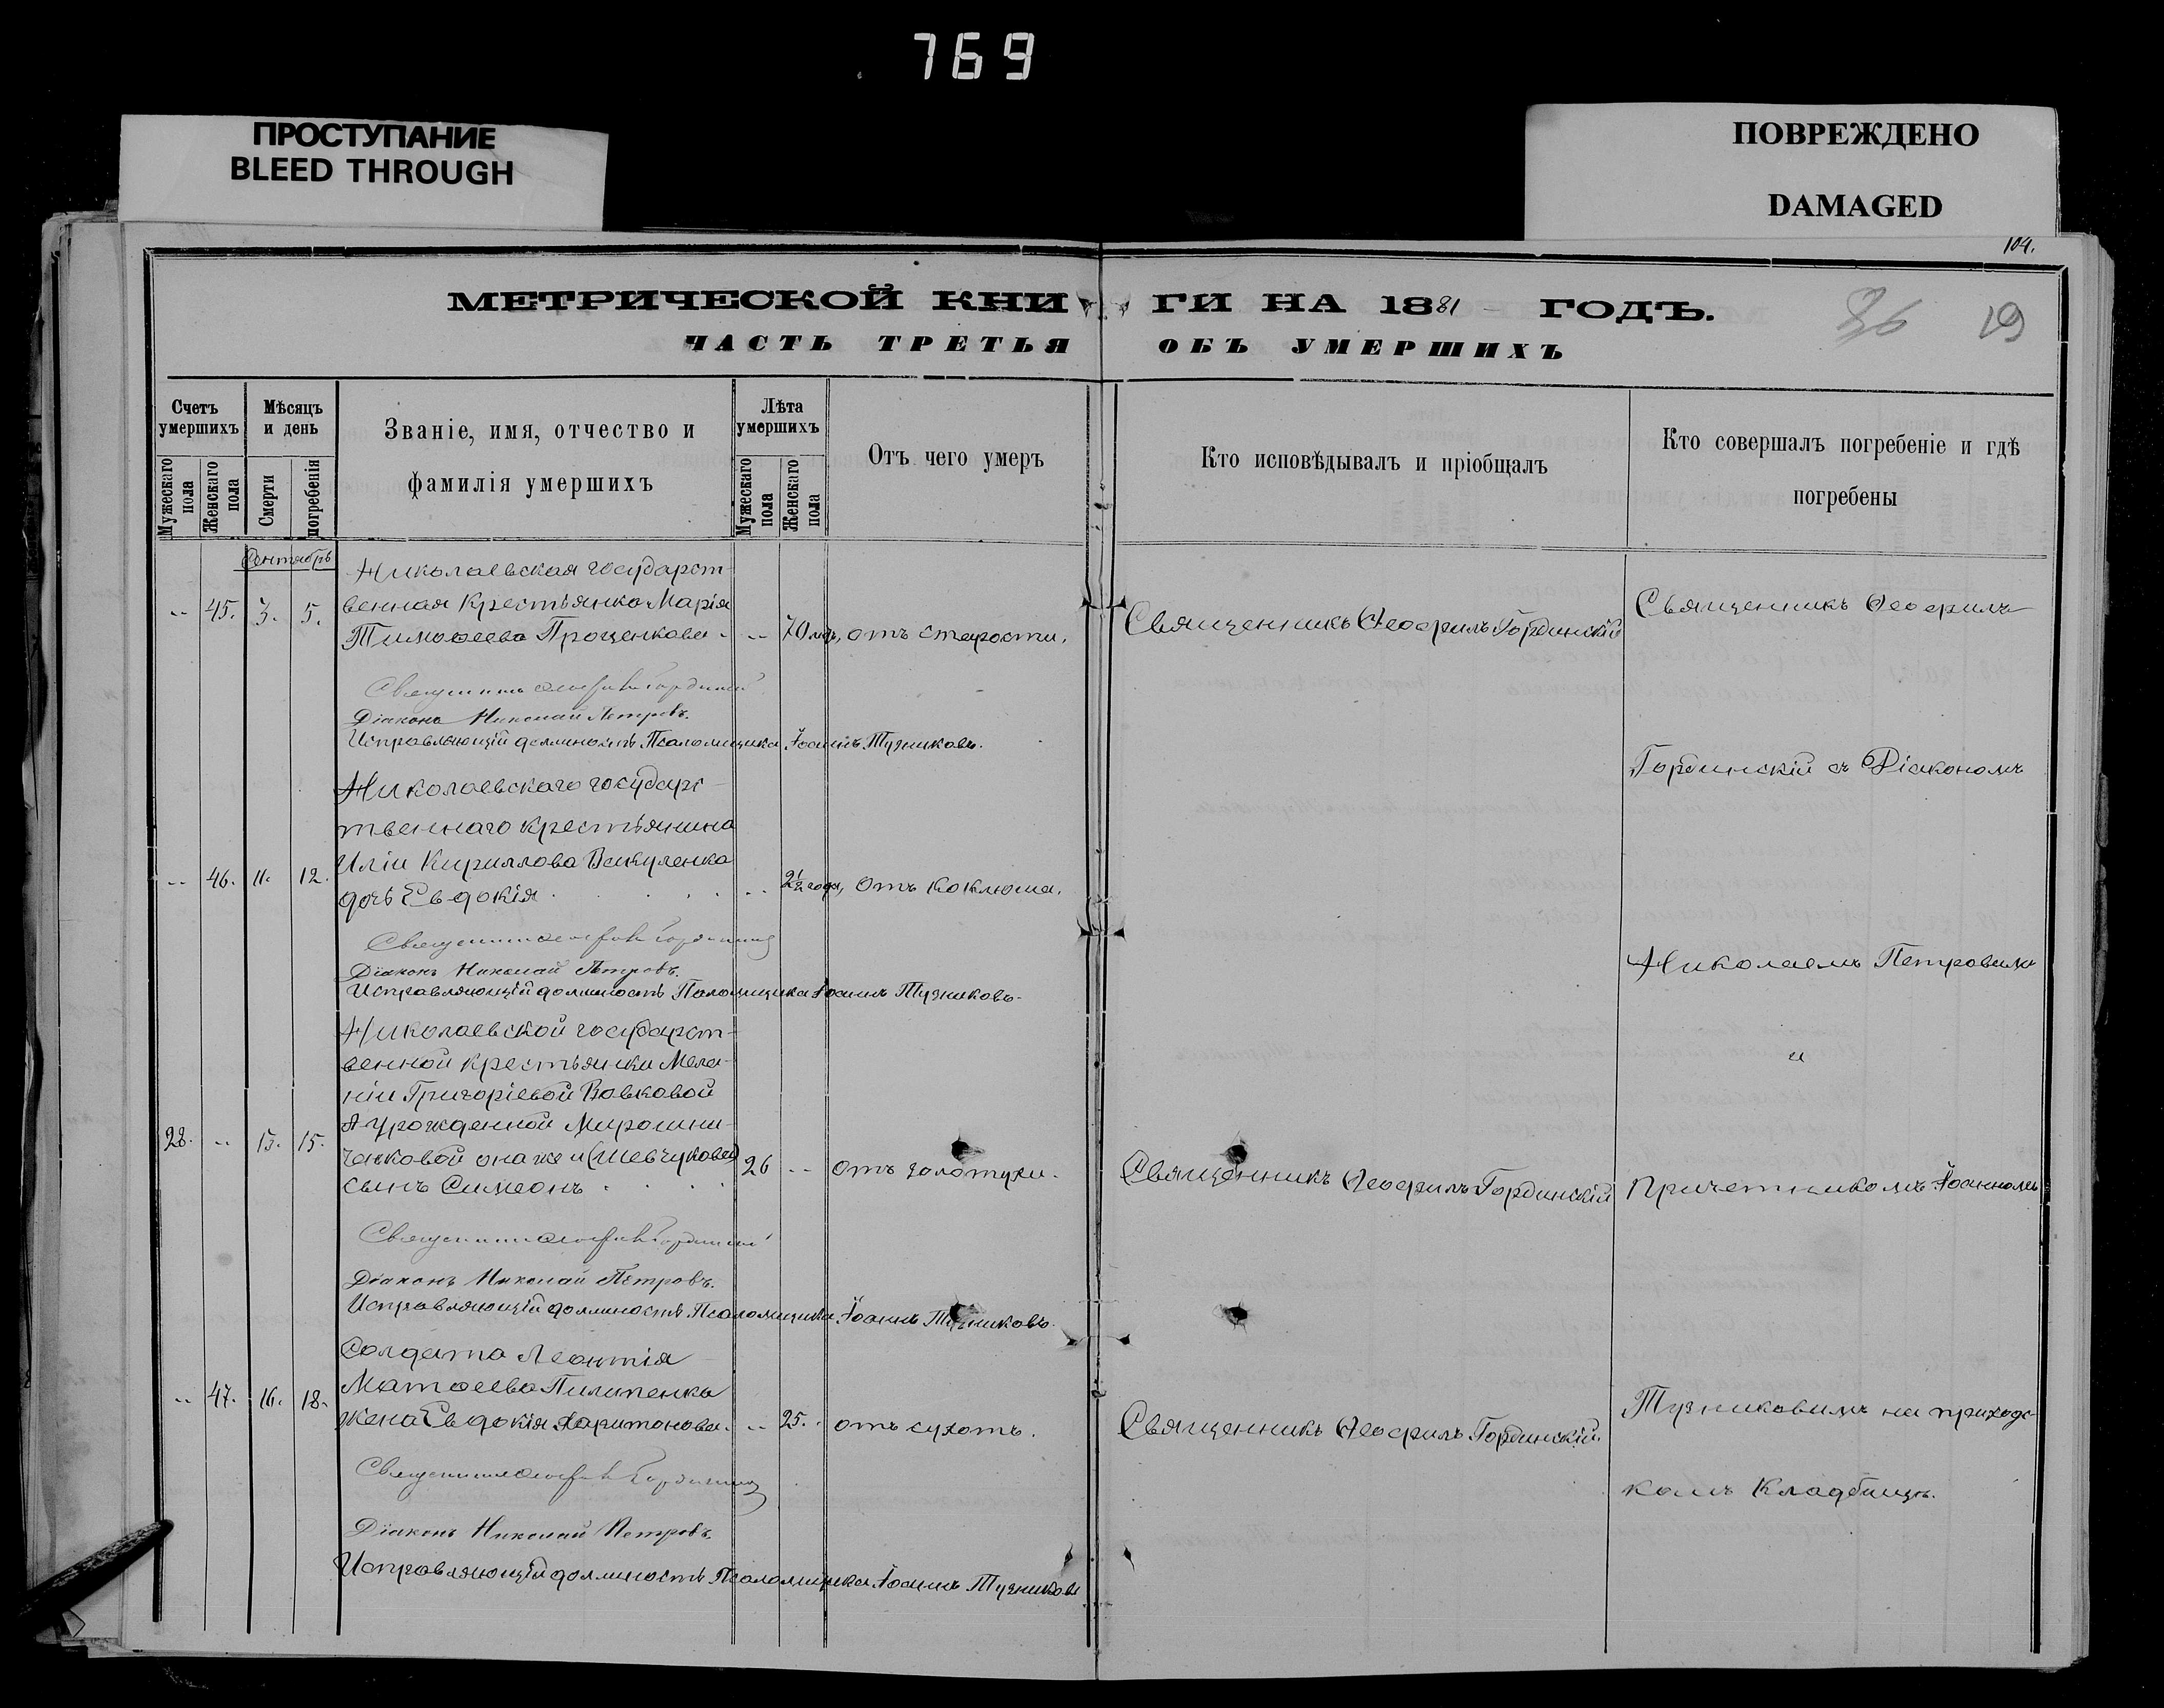 769
ПРОСТУПАНИЕ
BLEED THROUGH
ПОВРЕЖДЕНО
DAMAGED
104.
МЕТРИЧЕСКОЙ КНИГИ НА 1881 ГОДЪ.
36 19
ЧАСТЬ ТРЕТЬЯ ОБЪ УМЕРШИХЪ
Счетъ умершихъ
Мужескаго пола
Женскаго пола
Мѣсяцъ и день
Смерти
погребенія
Званіе, имя, отчество и
фамилія умершихъ
Лѣта умершихъ
Мужескаго пола
Женскаго пола
Отъ чего умеръ
Кто исповѣдывалъ и пріобщалъ
Кто совершалъ погребеніе и гдѣ
погребены
Сентябрь
Николаевская государст-
-- 45. 3. 5. венная крестьянка Марія
Тимоѳеева Проценкова - -- 70 лѣтъ, отъ старости. Священникъ Ѳеофилъ Гординскій
Священникъ Ѳеофилъ
Священникъ Ѳеофилъ Гординскій
Діаконъ Николай Петровъ.
Исправляющій должность Псаломщика Іоаннъ Тузниковъ.
Гординскій съ Діакономъ
Николаевскаго государс-
твеннаго крестьянина
Иліи Кириллова Викуленка
-- 46. 11. 12. дочь Евдокія -- 2½ года, отъ коклюша.
Священникъ Ѳеофилъ Гординскій
Діаконъ Николай Петровъ.
Исправляющій должность Псаломщика Іоаннъ Тузниковъ.
Николаемъ Петровымъ
Николаевской государст-
венной крестьянки Мела-
ніи Григоріевой Вовковой
и
урожденной Мирошни-
28. -- 13. 15. ченковой она же и (Шевчукова)
сынъ Симеонъ 26 -- отъ золотухи. Священникъ Ѳеофилъ Гординскій
Причетникомъ Іоанномъ
Священникъ Ѳеофилъ Гординскій
Діаконъ Николай Петровъ.
Исправляющій должность Псаломщика Іоаннъ Тузниковъ.
Солдата Леонтія
-- 47. 16. 18. Матѳеева Пилипенка
жена Евдокія Харитонова. -- 25. отъ сухотъ. Священникъ Ѳеофилъ Гординскій.
Тузниковымъ на приходс-
комъ кладбищѣ.
Священникъ Ѳеофилъ Гординскій
Діаконъ Николай Петровъ.
Исправляющій должность Псаломщика Іоаннъ Тузниковъ